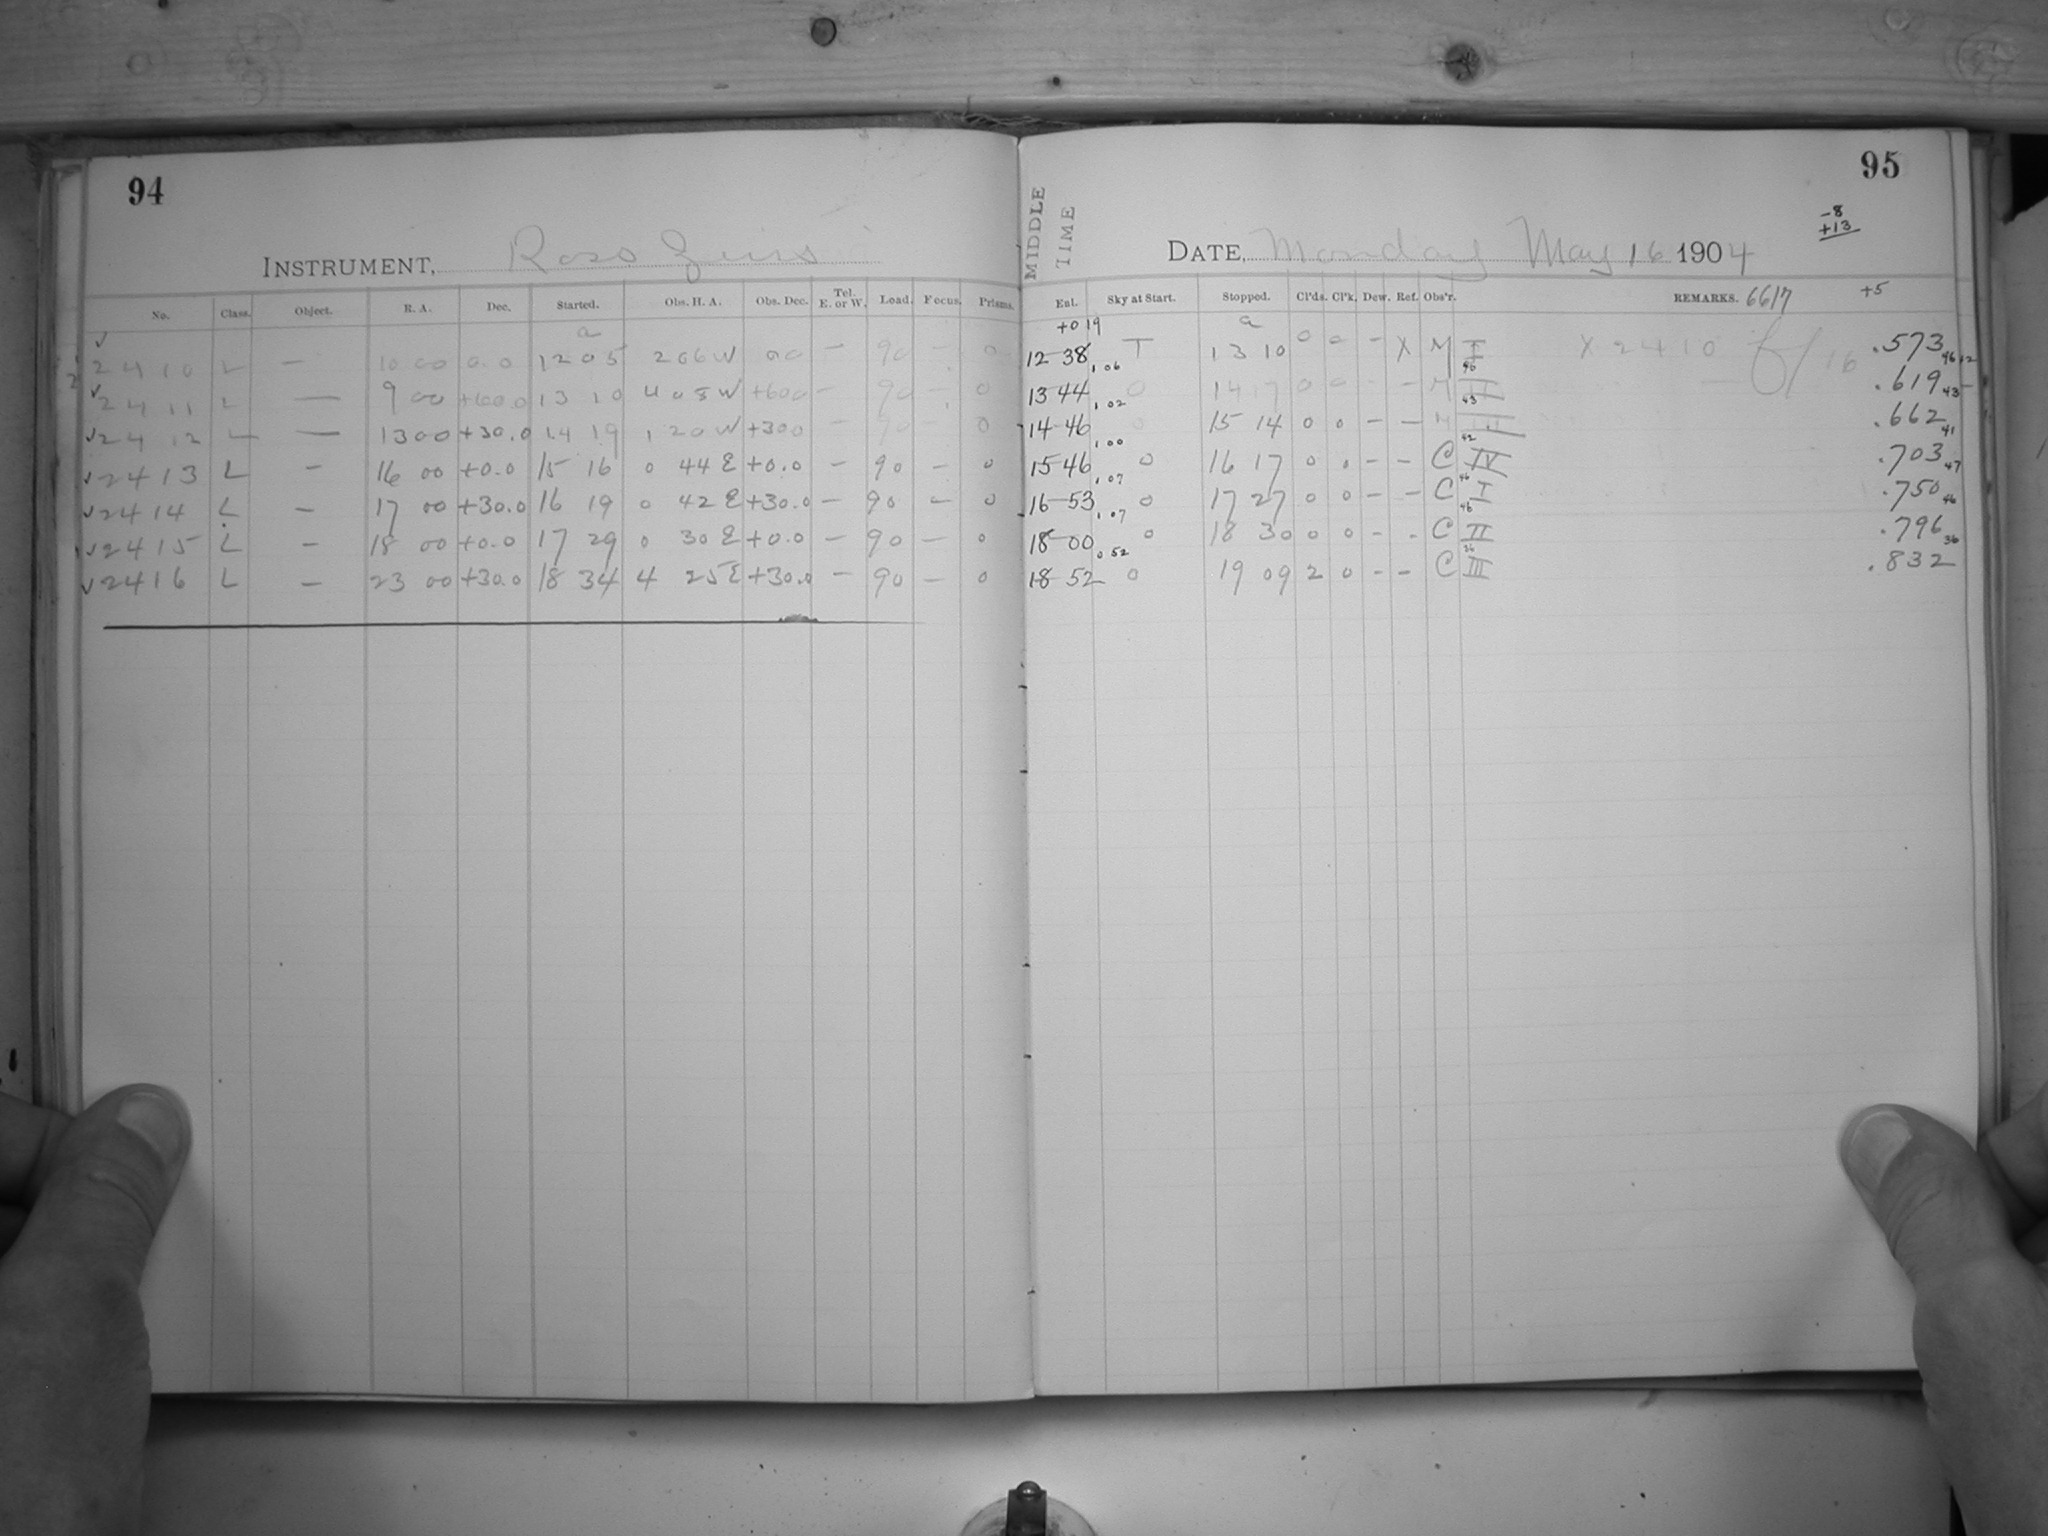 94
INSTRUMENT, Ross Zeiss
No. Class. Object. R. A. Dec. Started. Obs. H. A. Obs. Dec. Tel. E. or W. Load. Focus. Prisms.
a
✓ 2410 L — 10 00 0.0 12 05 2 06 W 0.0 — 90 — 0
✓ 2411 L — 9 00 +60.0 13 10 4 05 W +60.0 — 90 — 0
✓ 2412 L — 13 00 +30.0 14 19 1 20 W +30.0 — 90 — 0
✓ 2413 L — 16 00 +0.0 15 16 0 44 E +0.0 — 90 — 0
✓ 2414 L — 17 00 +30.0 16 19 0 42 E +30.0 — 90 — 0
✓ 2415 L — 18 00 +0.0 17 29 0 30 E +0.0 — 90 — 0
✓ 2416 L — 23 00 +30.0 18 34 4 25 E +30.0 — 90 — 0
95
-8
+13
MIDDLE TIME
DATE, Monday May 16 1904
Ent. Sky at Start. Stopped. Cl'ds. Cl'k. Dew. Ref. Obs'r. REMARKS. 6617 +5
+0 19 a
12-38 1.06 T 13 10 0 0 - X M I 46 X 2410 .573 46
13 44 1.02 0 14 17 0 0 - - M II 43 .619 43
14-46 1.00 0 15 14 0 0 - - M III 42 .662 41
15 46 1.07 0 16 17 0 0 - - C IV 46 .703 47
16-53 1.07 0 17 27 0 0 - - C I 46 .750 46
18-00 0 52 0 18 30 0 0 - - C II 36 .796 36
18-52 0 19 09 2 0 - - C III .832